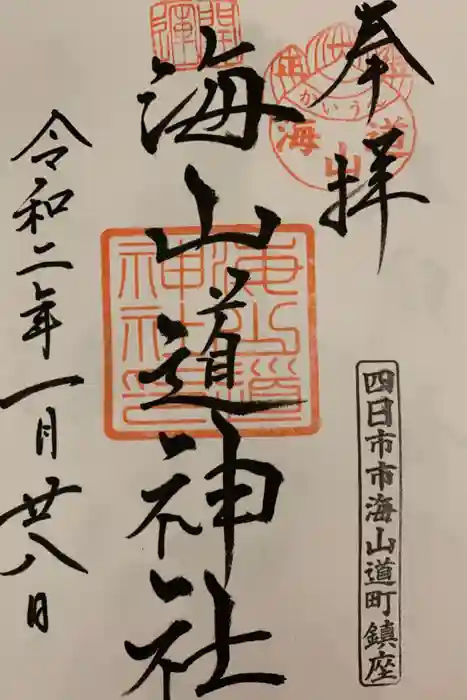 奉拝
四日市市海山道町鎮座
開運
かいうん
海山道
海山道神社
海山道神社印
令和二年一月廿八日